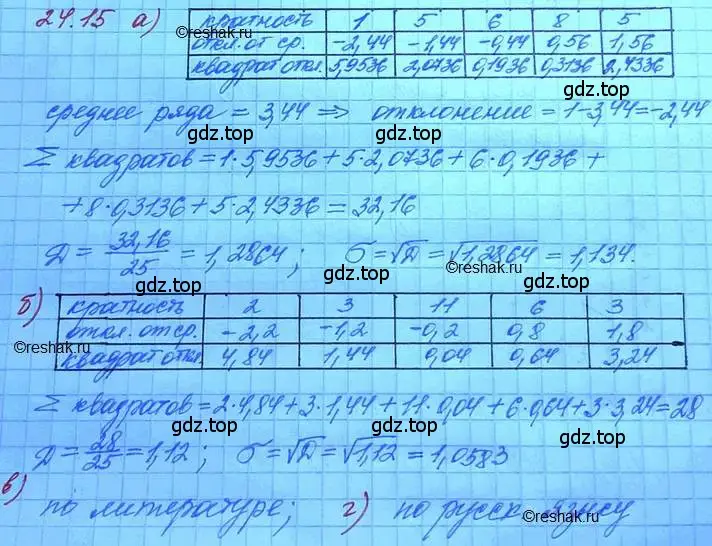 24.15 а) кратность 1 5 6 8 5
откл. от ср. -2,44 -1,44 -0,44 0,56 1,56
квадрат откл. 5,9536 2,0736 0,1936 0,3136 2,4336
©reshak.ru
gdz.top
©reshak.ru
среднее ряда = 3,44 ⇒ отклонение = 1-3,44=-2,44
gdz.top gdz.top
Σ квадратов = 1·5,9536+5·2,0736+6·0,1936+
+8·0,3136+5·2,4336=32,16
Д = 32,16/25 = 1,2864; б=√Д=√1,2864=1,134.
gdz.top gdz.top ©reshak.ru
б) кратность 2 3 11 6 3
откл. от ср. -2,2 -1,2 -0,2 0,8 1,8
квадрат откл. 4,84 1,44 0,04 0,64 3,24
©reshak.ru
Σ квадратов = 2·4,84+3·1,44+11·0,04+6·0,64+3·3,24=28
gdz.top gdz.top
Д=28/25=1,12; б=√Д=√1,12=1,0583
©reshak.ru
в) по литературе; г) по русск. языку
gdz.top gdz.top